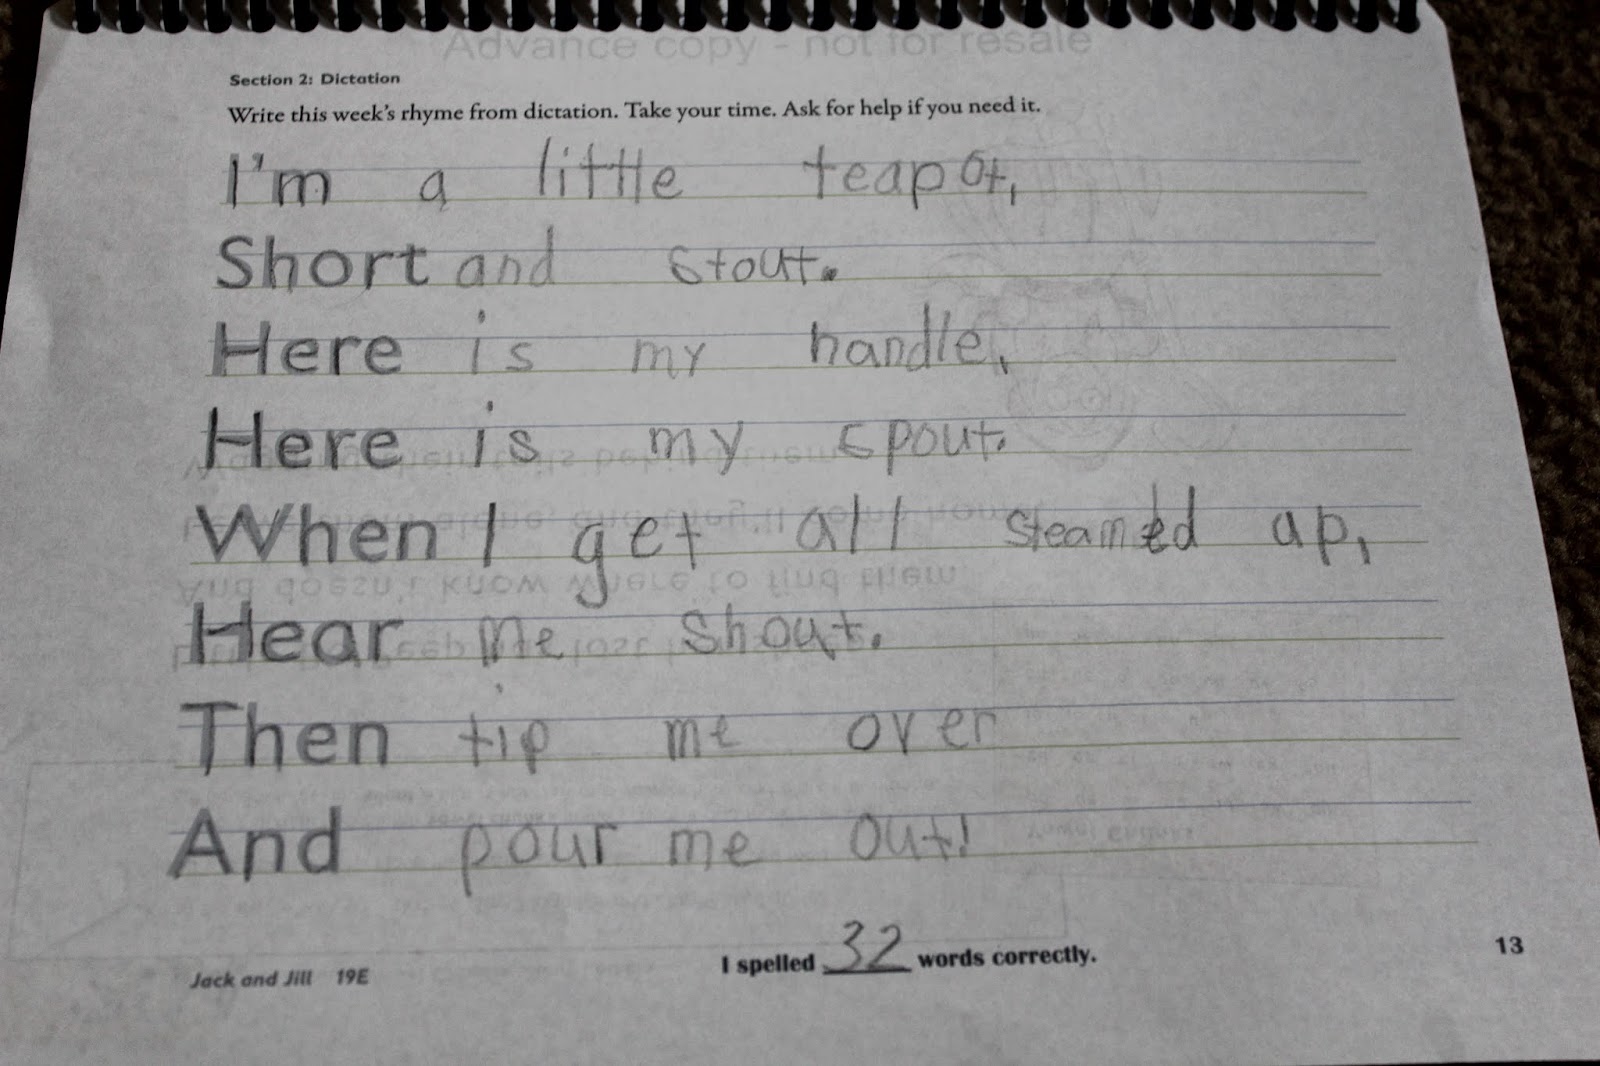 Advance copy - not for resale
Section 2: Dictation
Write this week's rhyme from dictation. Take your time. Ask for help if you need it.
I'm a little teapot,
Short and stout.
Here is my handle,
Here is my spout.
When I get all steamed up,
Hear me shout.
Then tip me over
And pour me out!
I spelled 32 words correctly.
Jack and Jill 19E
13